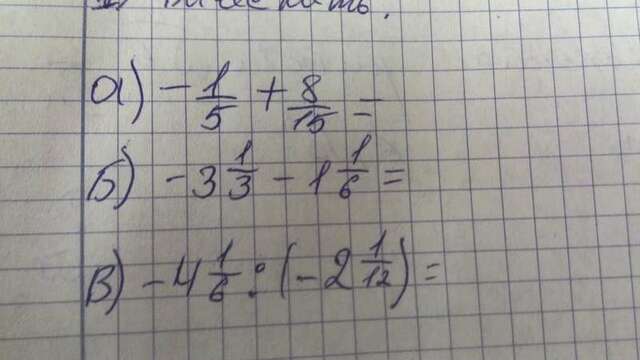 а) -1/5 + 8/15 =
Б) -3 1/3 - 1 1/6 =
В) -4 1/6 : (-2 1/12) =